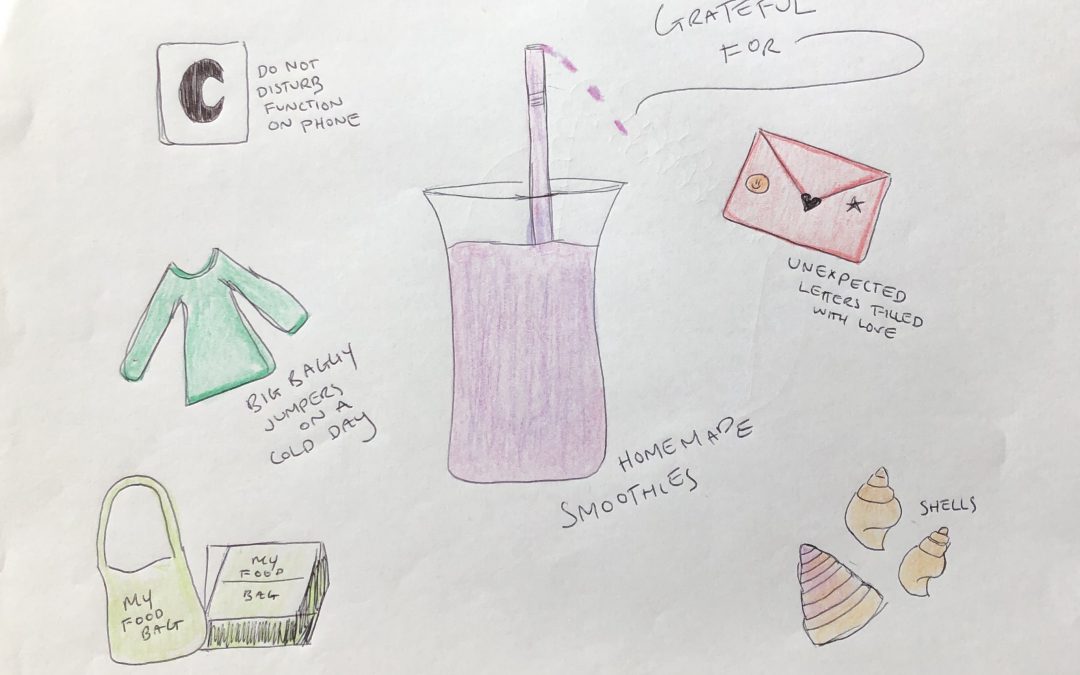 GRATEFUL
FOR
DO NOT
DISTURB
FUNCTION
ON PHONE
UNEXPECTED
LETTERS FILLED
WITH LOVE
BIG BAGGY
JUMPERS
ON A
COLD DAY
HOMEMADE
SMOOTHIES
SHELLS
MY
FOOD
BAG
MY
FOOD
BAG